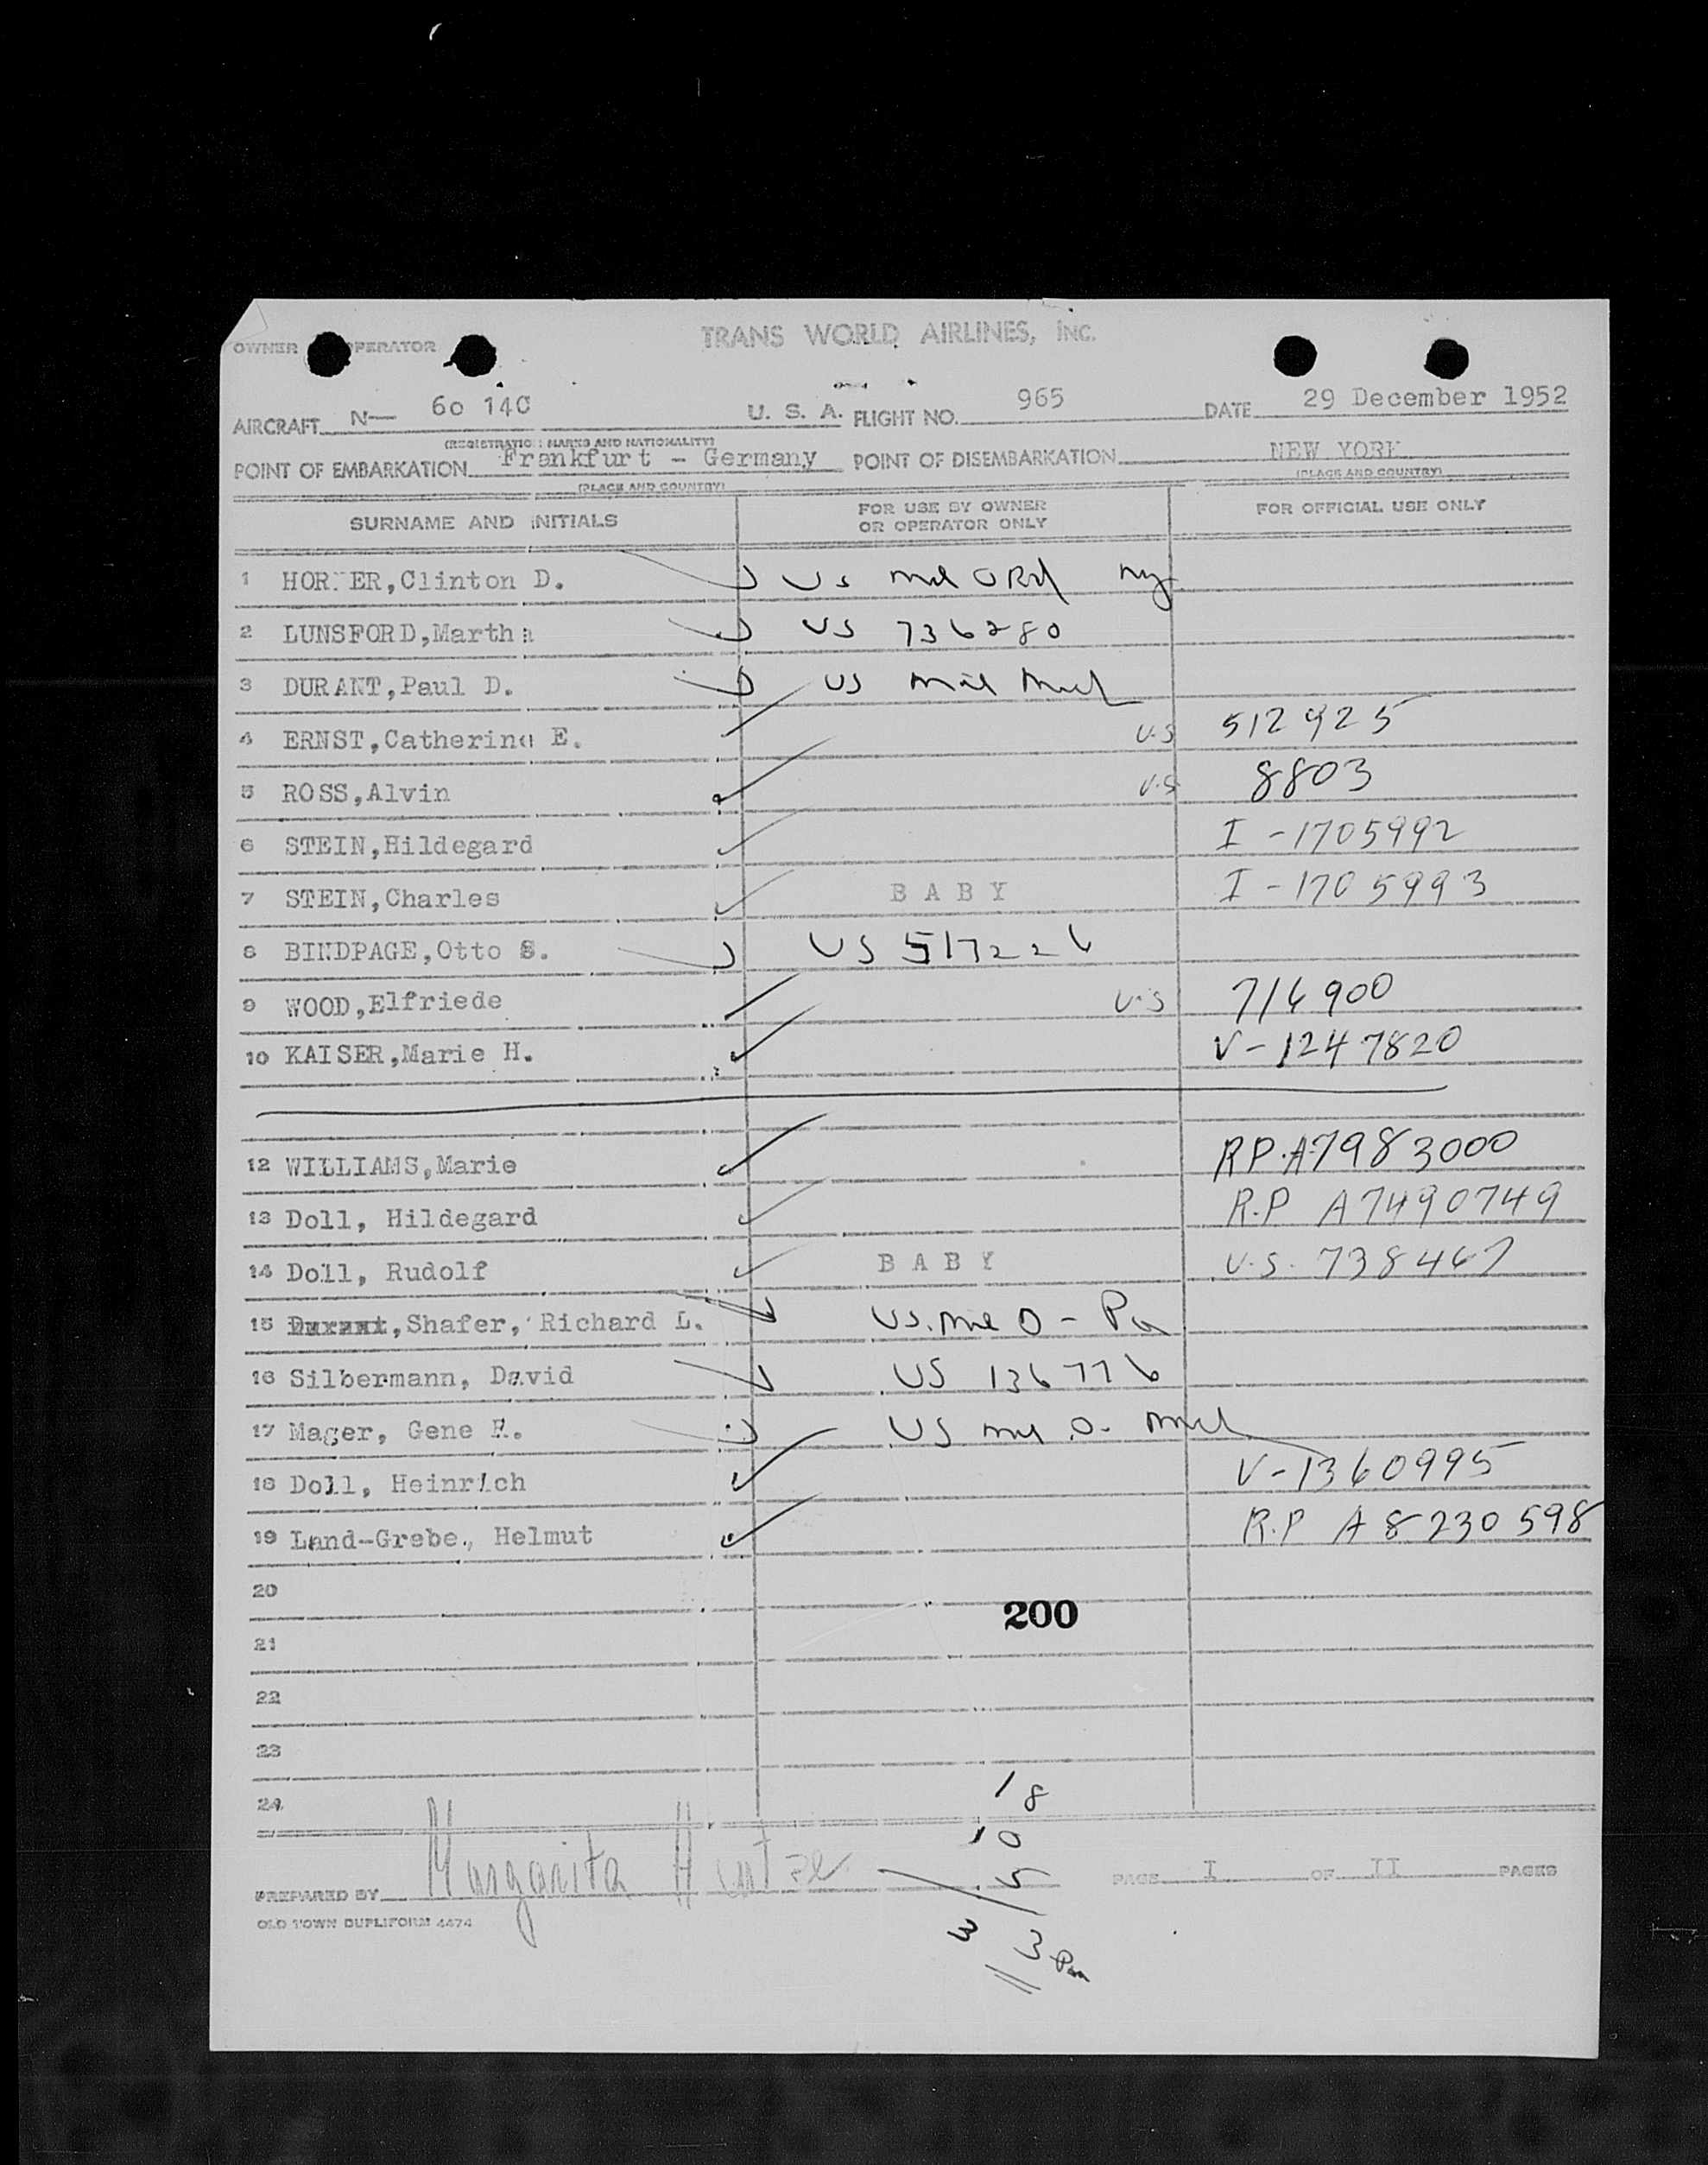 TRANS WORLD AIRLINES, INC.
OWNER OPERATOR
AIRCRAFT N— 60 14C U. S. A. FLIGHT NO. 965 DATE 29 December 1952
(REGISTRATION MARKS AND NATIONALITY)
POINT OF EMBARKATION Frankfurt - Germany POINT OF DISEMBARKATION NEW YORK
(PLACE AND COUNTRY) (PLACE AND COUNTRY)
SURNAME AND INITIALS FOR USE BY OWNER OR OPERATOR ONLY FOR OFFICIAL USE ONLY
1 Clinton D. US ny
2 LUNSFORD,Martha US 736280
3 DURANT,Paul D. US mil
4 ERNST,Catherine E. U.S 512925
5 ROSS,Alvin U.S 8803
6 STEIN,Hildegard I-1705992
7 STEIN,Charles BABY I-1705993
8 BINDPAGE,Otto S. US 517226
9 WOOD,Elfriede U.S 716900
10 KAISER,Marie H. V-1247820
12 WILLIAMS,Marie RP.A-7983000
13 Doll, Hildegard R.P A7490749
14 Doll, Rudolf BABY U.S. 738467
15 Durant,Shafer, Richard L. US. O - Pa
16 Silbermann, David US 136776
17 Mager, Gene R. US O-
18 Doll, Heinrich V-1360995
19 Land-Grebe, Helmut R.P A8230598
20
200
21
22
23
24
18
10
5
3 3
PREPARED BY Margarita PAGE I OF II PAGES
OLD TOWN DUPLIFORM 4474